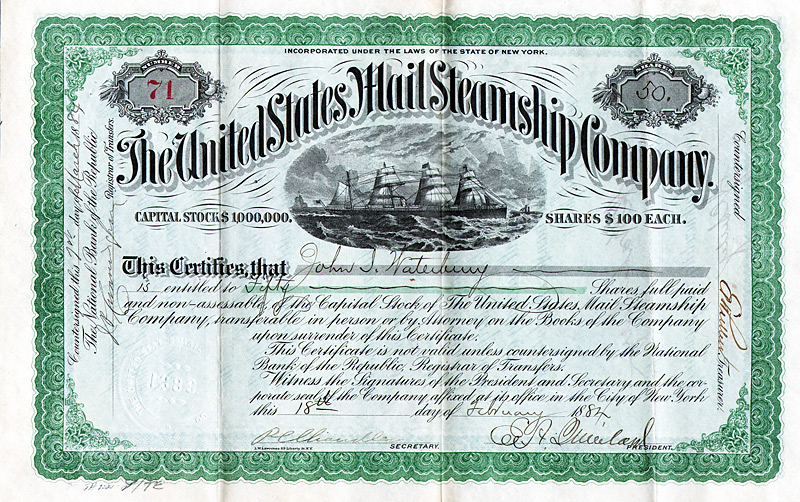 INCORPORATED UNDER THE LAWS OF THE STATE OF NEW YORK.
NUMBER
71
50.
The United States Mail Steamship Company.
CAPITAL STOCK $ 1,000,000.
SHARES $ 100 EACH.
This Certifies, that John I. Waterbury
is entitled to Fifty Shares, full paid
and non-assessable, of the Capital Stock of The United States Mail Steamship
Company, transferable in person or by Attorney on the Books of the Company
upon surrender of this Certificate.
This Certificate is not valid unless countersigned by the National
Bank of the Republic, Registrar of Transfers.
Witness the Signatures of the President and Secretary and the cor-
porate seal of the Company affixed at its office in the City of New York
this 18th day of February 1884
SECRETARY.
PRESIDENT.
Countersigned this day of March 1884
The National Bank of the Republic
Registrar of Transfers.
Countersigned
Treasurer.